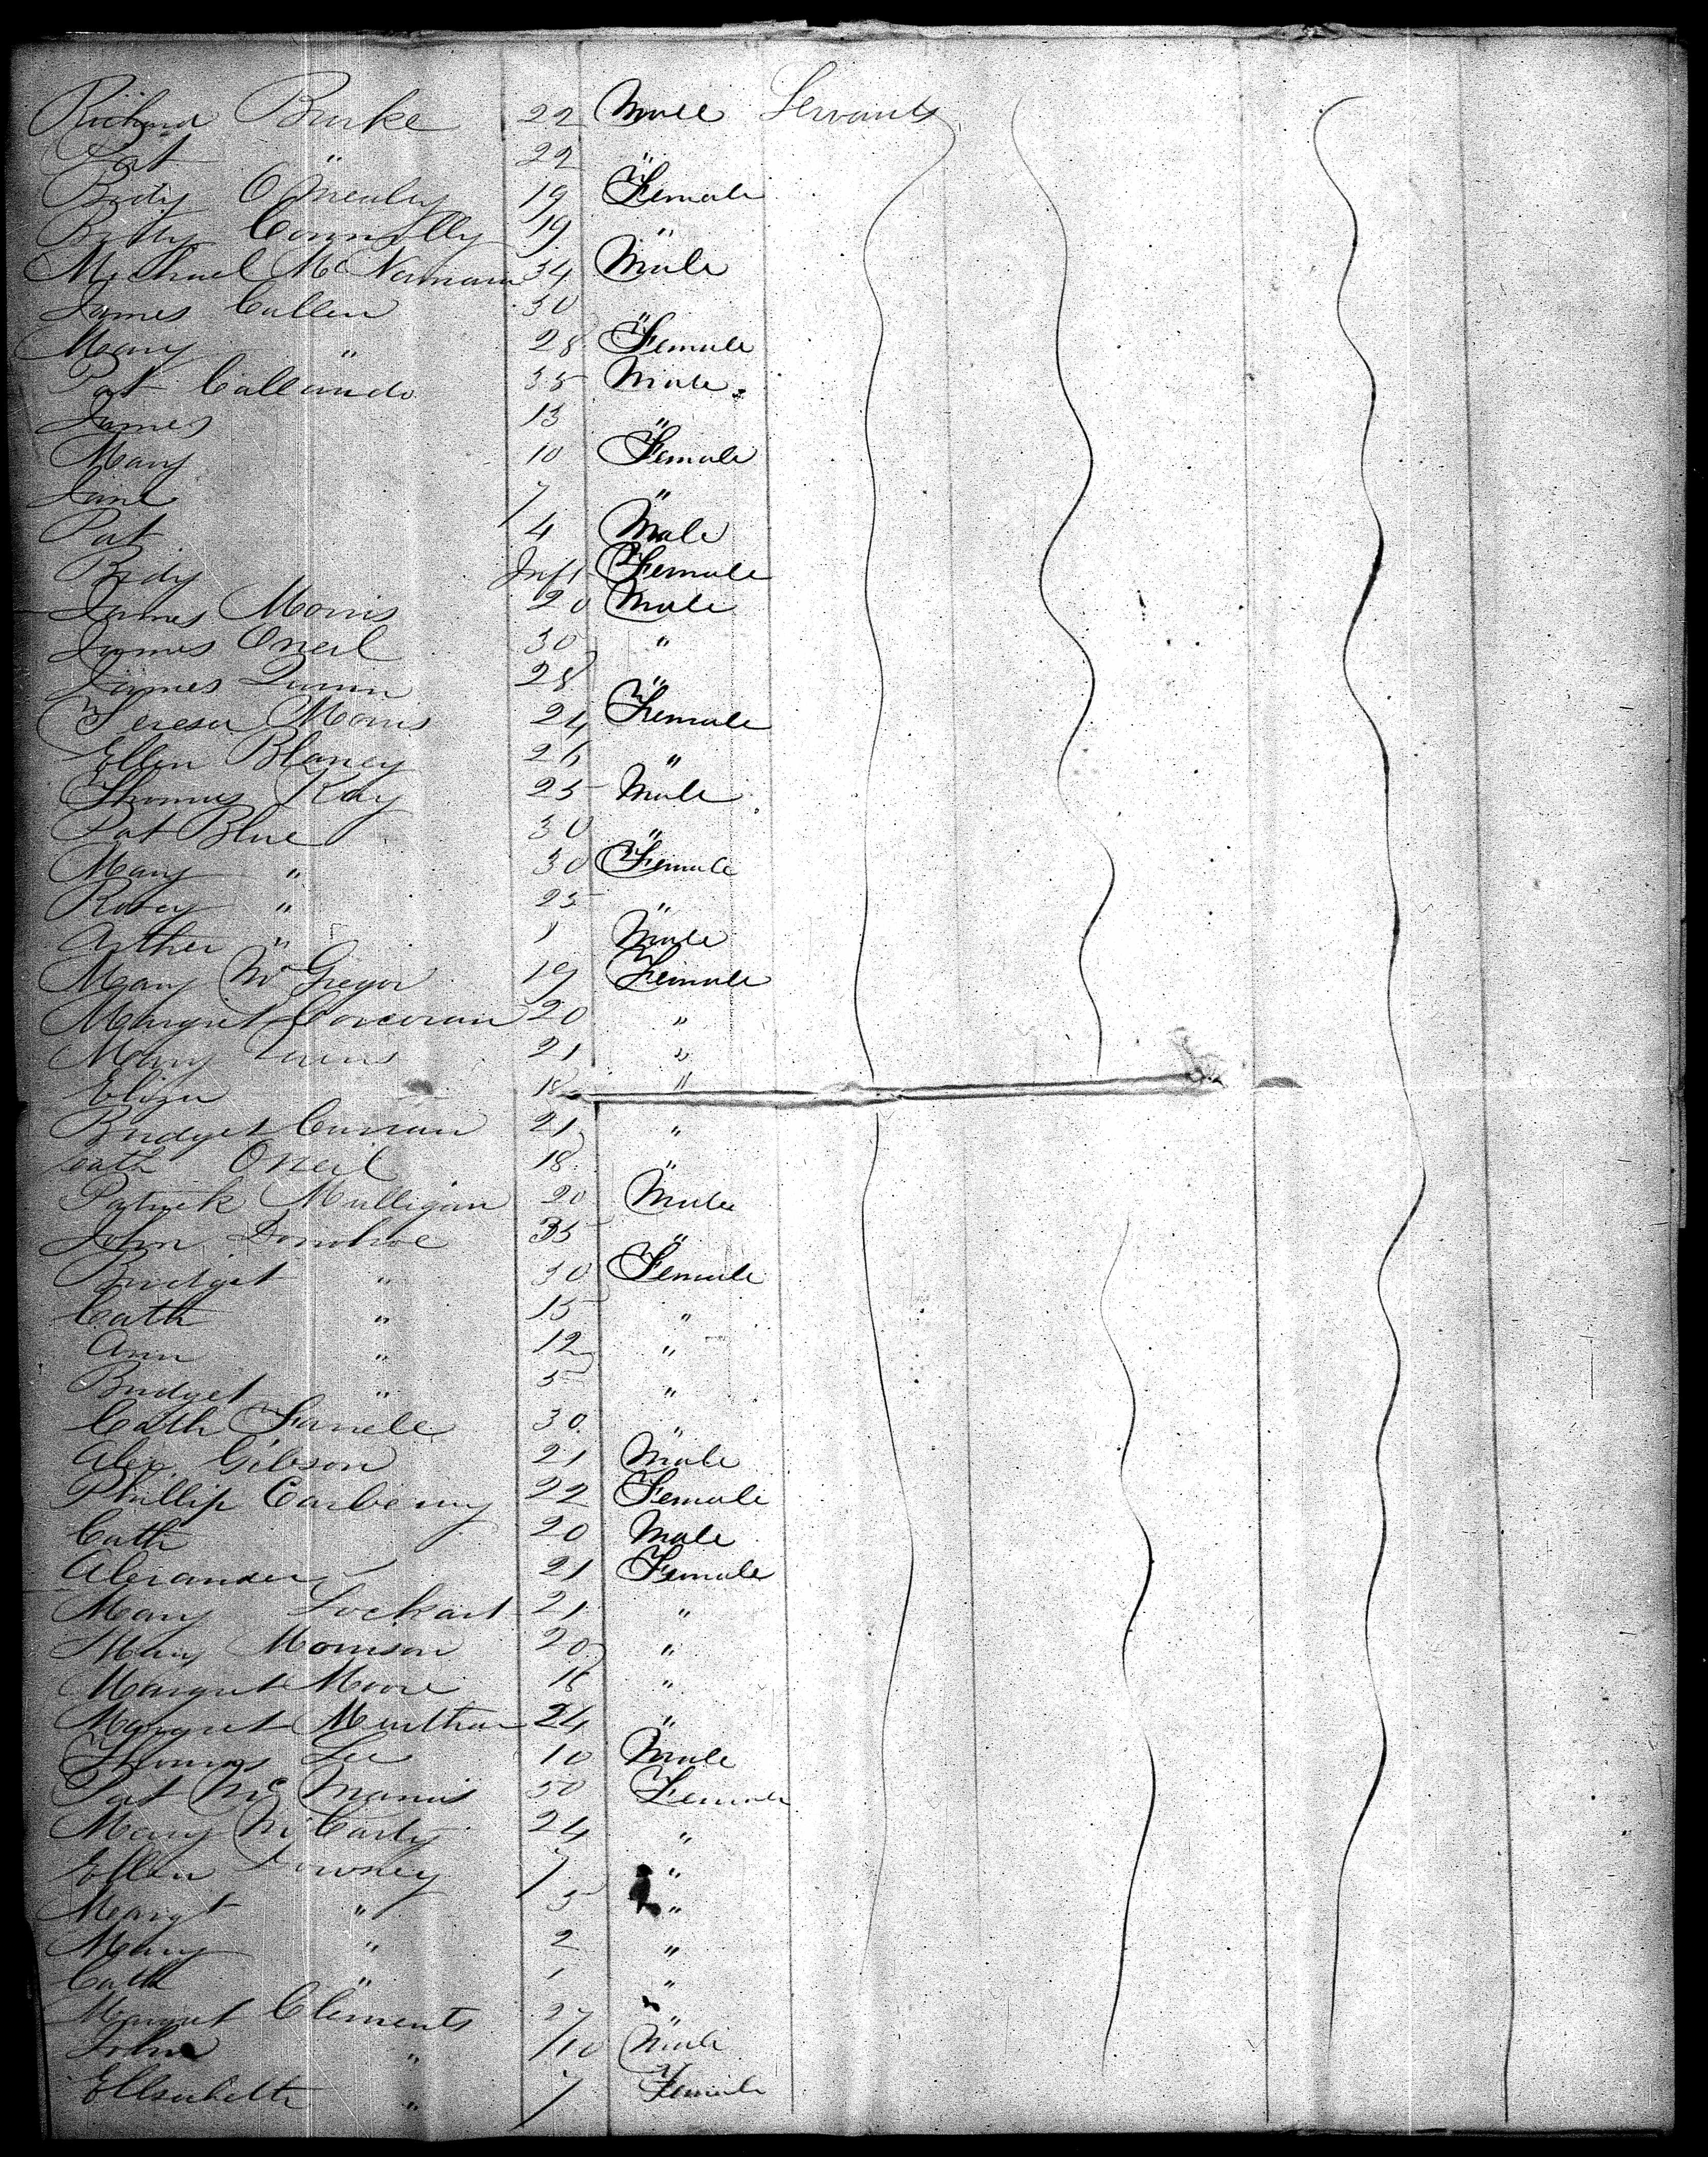 Richard Burke 22 Male Servants
Pat " 22 "
Bidy O 19 Female
Bitty Connolly 19 "
Michael McNamara 34 Male
James Cullen 30 "
Mary " 28 Female
Pat 35 Male
James 13 "
Mary 10 Female
Jane 7 "
Pat 4 Male
Bidy Inft Female
James Morris 20 Male
James Oneil 30 "
James 28 "
Teresa Morris 24 Female
Ellen Blaney 26 "
Thomas Kay 25 Male
Pat Blue 30 "
Mary " 30 Female
" 25 "
Arther " 1 Male
Mary McGregor 19 Female
Margret Corcoran 20 "
Mary 21 "
Eliza 18 "
Bridget Curran 21 "
Cath Oneil 18 "
Patrick Mulligan 20 Male
John Donohoe 35 "
Bridget " 30 Female
Cath " 15 "
Ann " 12 "
Bridget " 5 "
Cath 30 "
Alex. Gibson 21 Male
Phillip Carberry 22 Female
Cath 20 Male
Alexander " 21 Female
Mary Lockart 21 "
Mary Morrison 20 "
Margret Moore 18 "
Margret 24 "
Thomas Lee 10 Male
Pat McManis 50 Female
Mary McCarty 24 "
Ellen 7 "
Margt " 5 "
Mary " 2 "
Cath " 1 "
Margret Clements 27 "
John " 10 Male
Ellsabeth " 7 Female